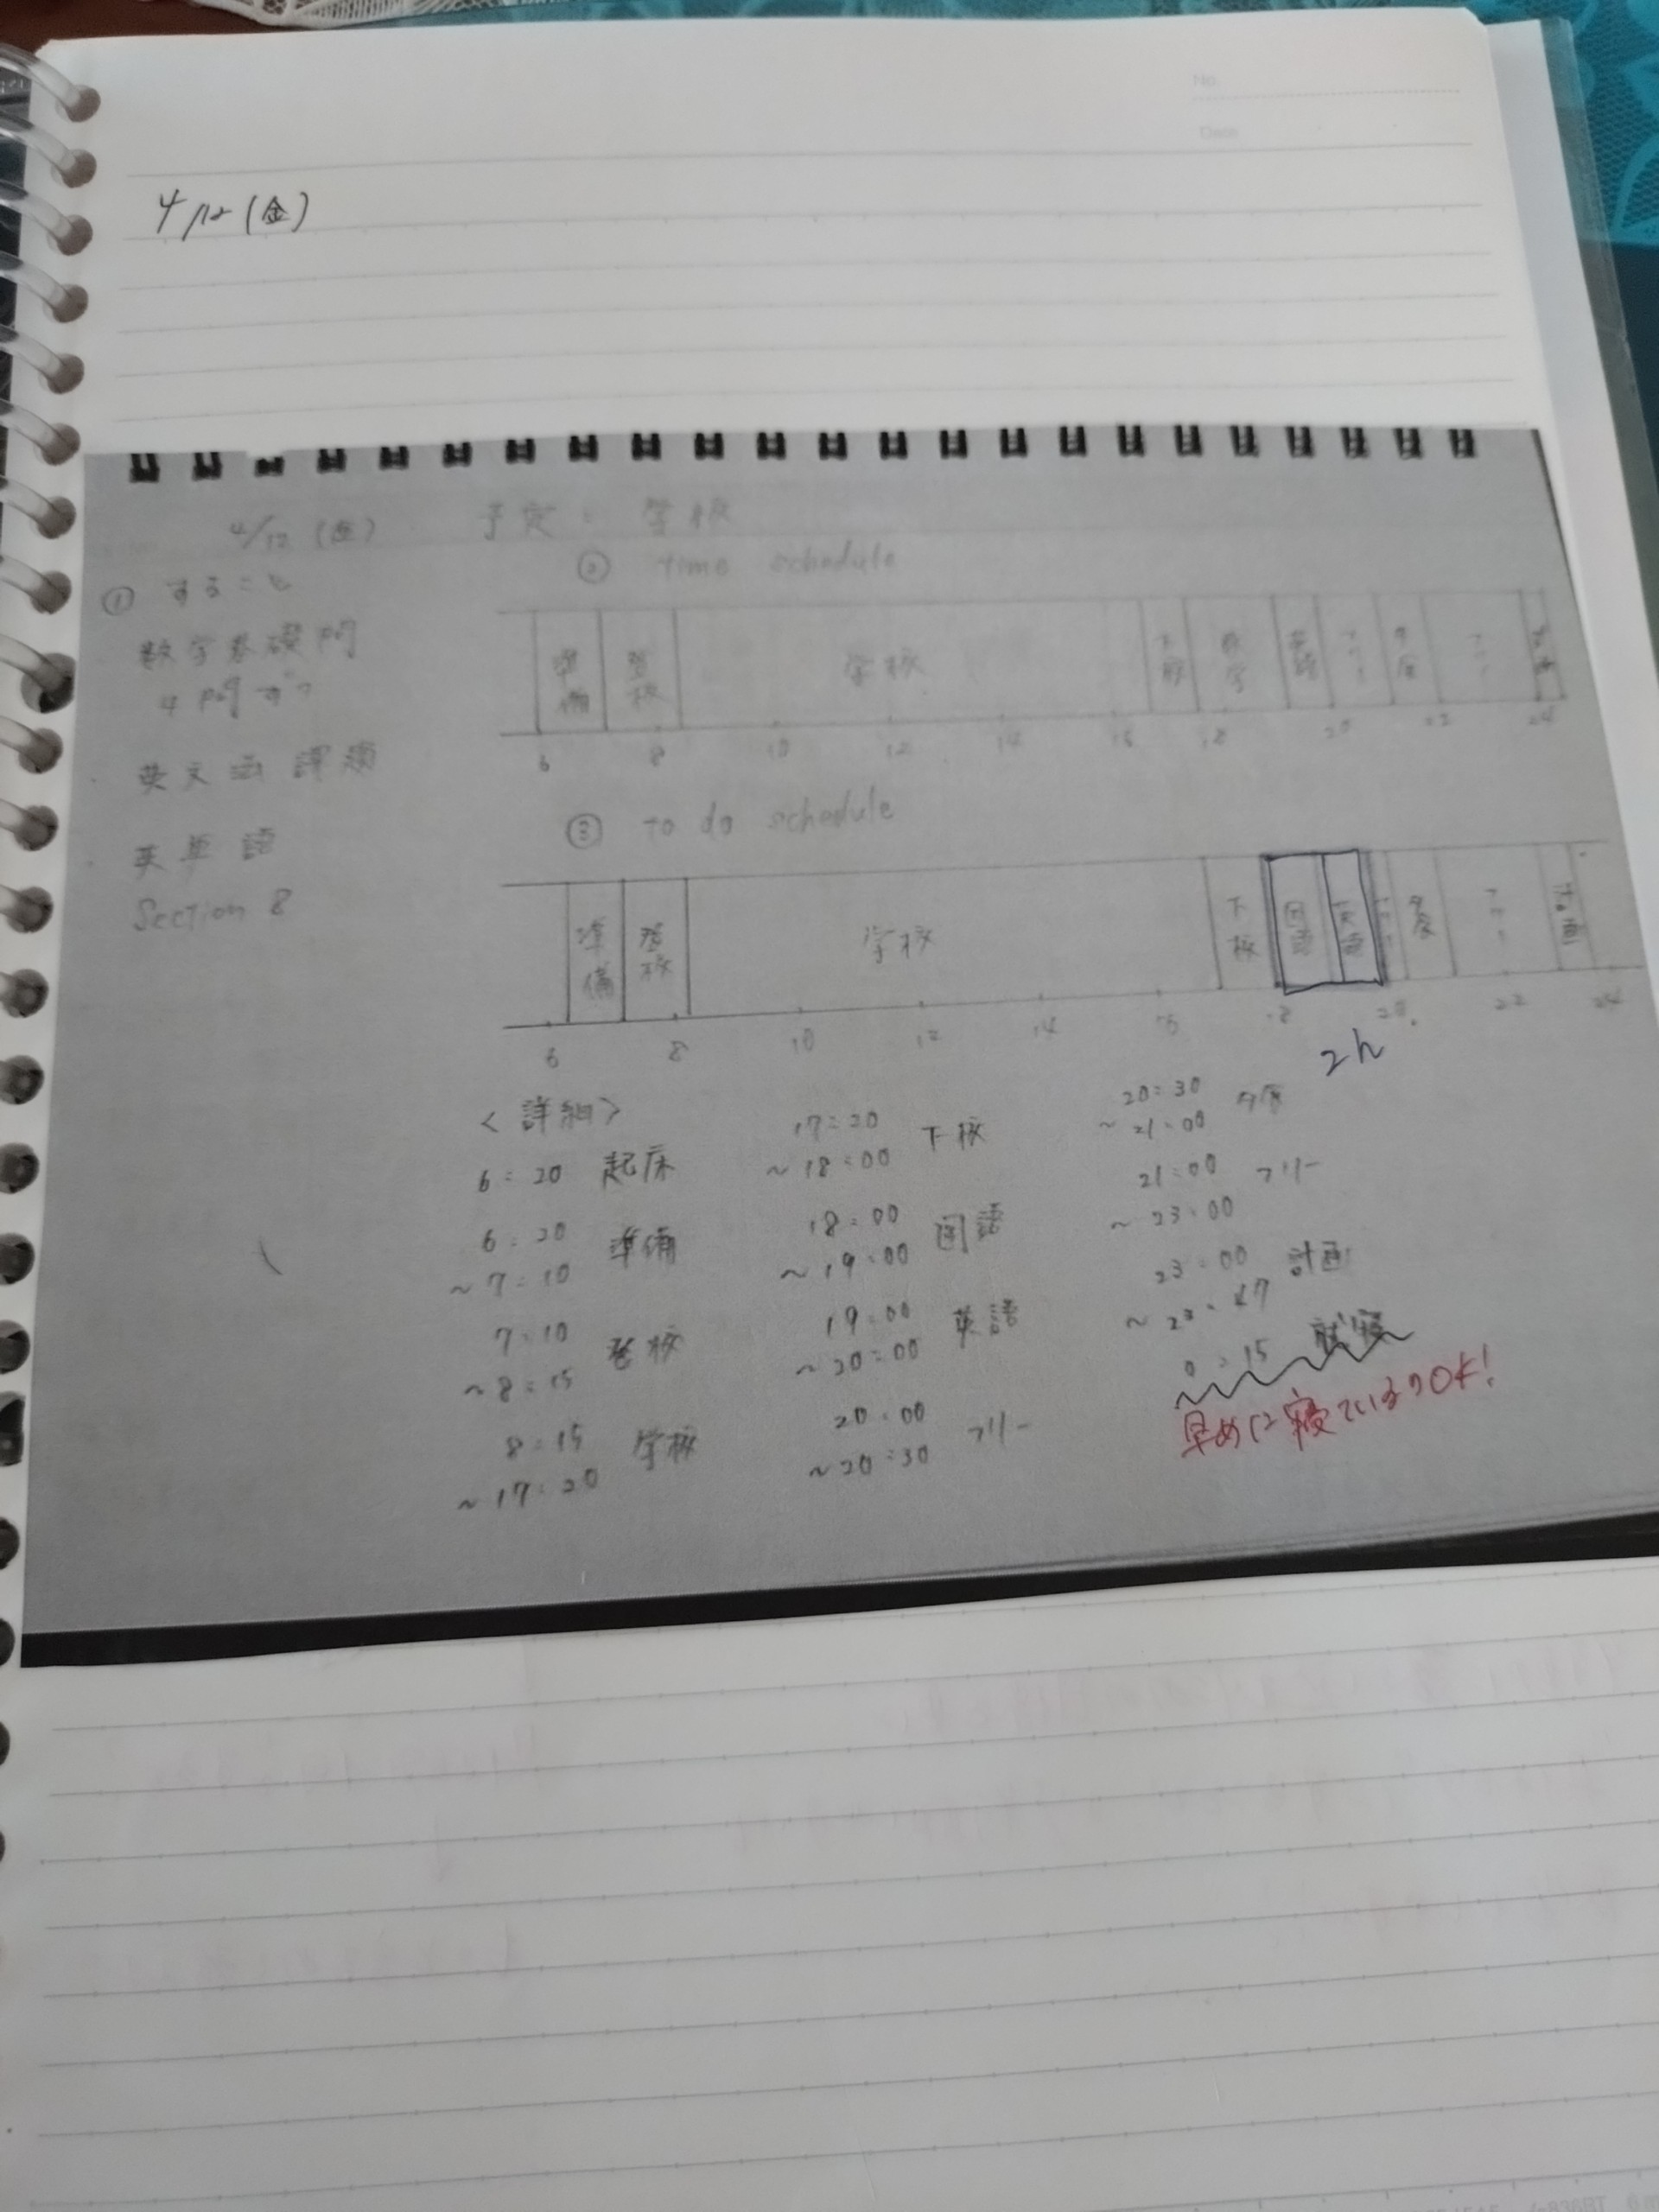 No.
Date
4/12(金)
4/12(金) 予定:学校
① すること
数学基礎問
4問ずつ
・英文
・英単語
Section 8
② time schedule
準備 登校 学校 下校 数学 英語 フリー 夕食 フリー
6 8 10 12 14 16 18 20 22 24
③ to do schedule
準備 登校 学校 下校 国語 英語 フリー 夕食 フリー 計画
6 8 10 12 14 16 18 20 22 24
2h
<詳細>
6:20 起床
6:20 準備
~7:10
7:10 登校
~8:15
8:15 学校
~17:20
17:20 下校
~18:00
18:00 国語
~19:00
19:00 英語
~20:00
20:00 フリー
~20:30
20:30 夕食
~21:00
21:00 フリー
~23:00
23:00 計画
0:15 就寝
早めに寝ているのOK!